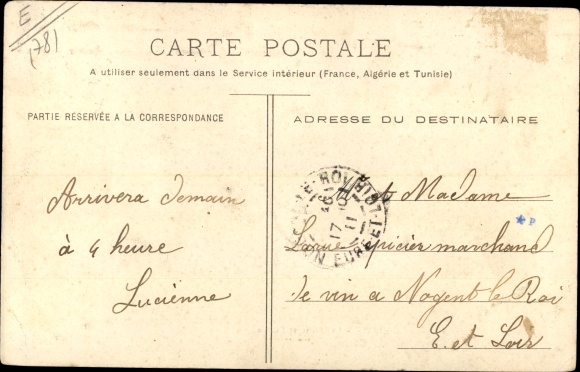 E
1781
CARTE POSTALE
A utiliser seulement dans le Service intérieur (France, Algérie et Tunisie)
PARTIE RÉSERVÉE A LA CORRESPONDANCE
ADRESSE DU DESTINATAIRE
Arrivera demain
à 4 heure
Lucienne
et Madame
épicier marchand
de vin a Nogent le Roi
E. et Loir
* P
17
11
EURE ET LOIR